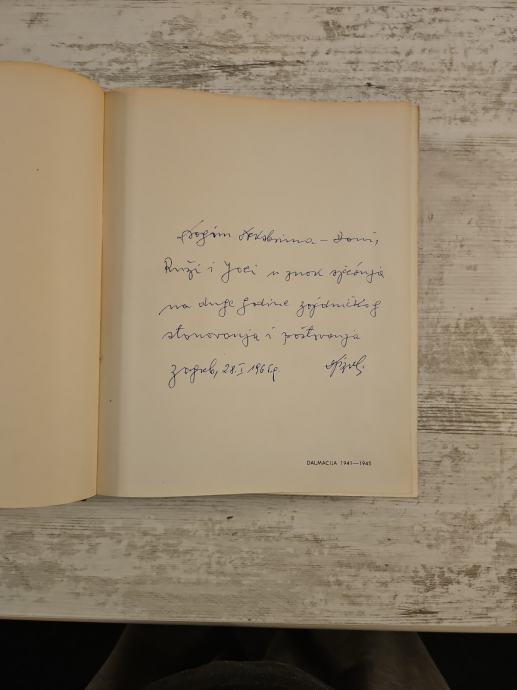 Dragim – Domi,
Ruži i Joci u znak sjećanja
na duge godine zajedničkog
stanovanja i poštovanja
Zagreb, 28.I 196
DALMACIJA 1941—1945